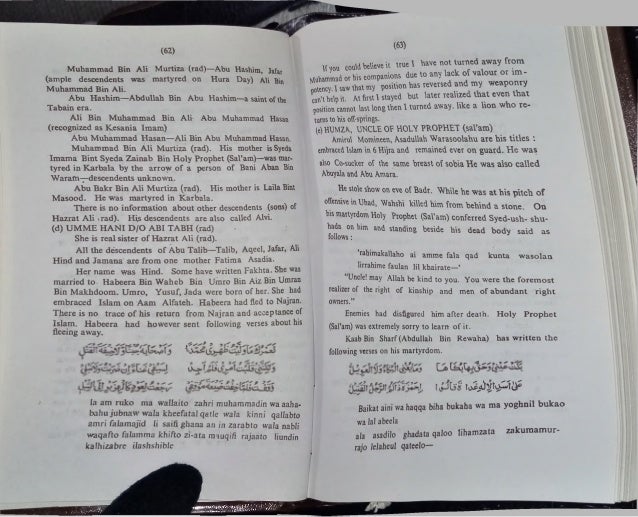 (62)
Muhammad Bin Ali Murtiza (rad)—Abu Hashim, Jafar
(ample descendents was martyred on Hura Day) Ali Bin
Muhammad Bin Ali.
Abu Hashim—Abdullah Bin Abu Hashim—a saint of the
Tabain era.
Ali Bin Muhammad Bin Ali Abu Muhammad Hasan
(recognized as Kesania Imam)
Abu Muhammad Hasan—Ali Bin Abu Muhammad Hasan.
Muhammad Bin Ali Murtiza (rad). His mother is Syeda
Imama Bint Syeda Zainab Bin Holy Prophet (Sal'am)—was mar-
tyred in Karbala by the arrow of a person of Bani Aban Bin
Waram—descendents unknown.
Abu Bakr Bin Ali Murtiza (rad). His mother is Laila Bint
Masood. He was martyred in Karbala.
There is no information about other descendents (sons) of
Hazrat Ali (rad). His descendents are also called Alvi.
(d) UMME HANI D/O ABI TABH (rad)
She is real sister of Hazrat Ali (rad).
All the descendents of Abu Talib—Talib, Aqeel, Jafar, Ali
Hind and Jamana are from one mother Fatima Asadia.
Her name was Hind. Some have written Fakhta. She was
married to Habeera Bin Waheb Bin Umro Bin Aiz Bin Umran
Bin Makhdoom. Umro, Yusuf, Jada were born of her. She had
embraced Islam on Aam Alfateh. Habeera had fled to Najran.
There is no trace of his return from Najran and acceptance of
Islam. Habeera had however sent following verses about his
fleeing away.
la am ruko ma wallaito zahri muhammadin wa aaha-
bahu jubnaw wala kheefatal qatle wala kinni qallabto
amri falamajid li saifi ghana an in zarabto wala nabli
waqafto falamma khifto zi-ata mauqifi rajaato liundin
kalhizabre ilashshible
(63)
If you could believe it true I have not turned away from
Muhammad or his companions due to any lack of valour or im-
potency. I saw that my position has reversed and my weaponry
can't help it. At first I stayed but later realized that even that
position cannot last long then I turned away. like a lion who re-
turns to his off-springs.
(e) HUMZA, UNCLE OF HOLY PROPHET (sal'am)
Amirul Momineen, Asadullah Warasoolahu are his titles :
embraced Islam in 6 Hijra and remained ever on guard. He was
also Co-sucker of the same breast of sobia He was also called
Abuyala and Abu Amara.
He stole show on eve of Badr. While he was at his pitch of
offensive in Uhad, Wahshi killed him from behind a stone. On
his martyrdom Holy Prophet (Sal'am) conferred Syed-ush- shu-
hada on him and standing beside his dead body said as
follows :
'rabimakallaho ai amme fala qad kunta wasolan
lirrahime faulan lil khairate—'
"Uncle! may Allah be kind to you. You were the foremost
realizer of the right of kinship and men of abundant right
owners."
Enemies had disfigured him after death. Holy Prophet
(Sal'am) was extremely sorry to learn of it.
Kaab Bin Sharf (Abdullah Bin Rewaha) has written the
following verses on his martyrdom.
Baikat aini wa haqqa biha bukaha wa ma yoghnil bukao
wa lal abeela
ala asadilo ghadata qaloo lihamzata zakumamur-
rajo lelaheul qateelo—